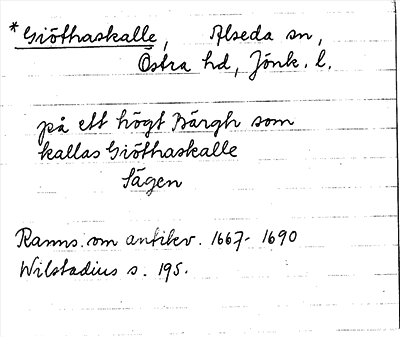 * Giöthaskalle, Alseda sn,
Östra hd, Jönk. l.
på ett högt Bärgh som
kallas Giöthaskalle
Sägen
Ranns. om antikv. 1667-1690
Wilstadius s. 195.